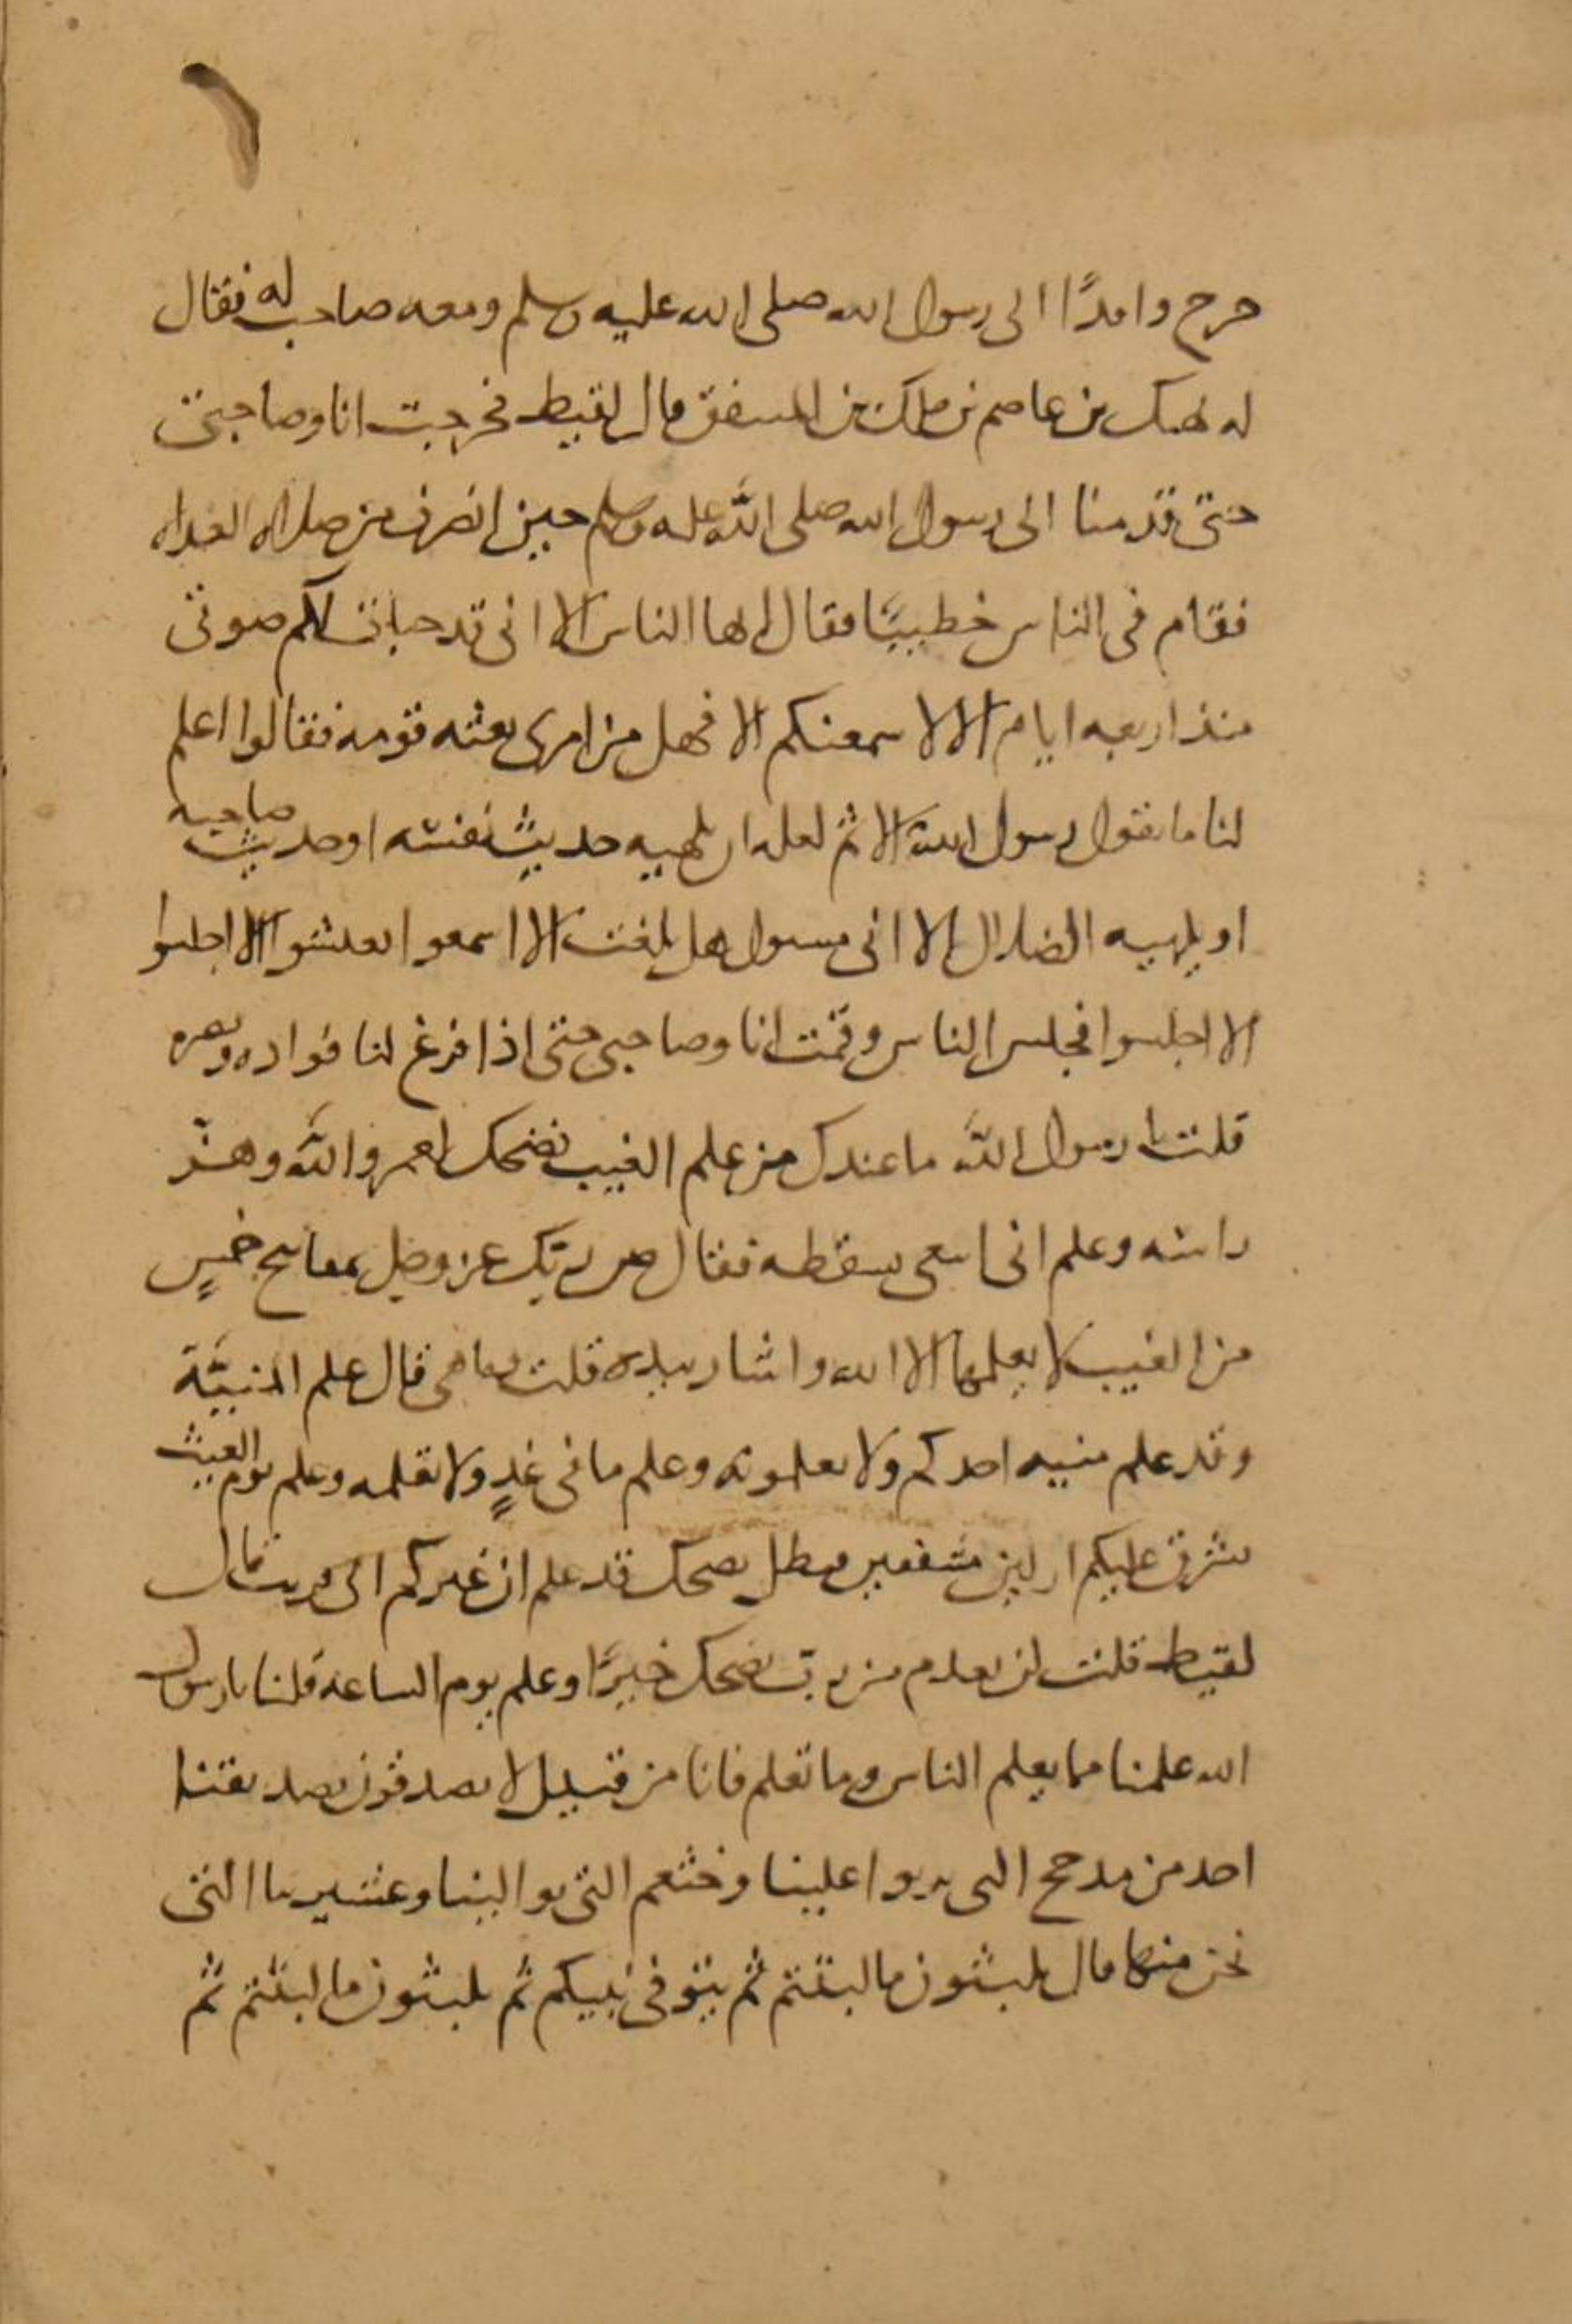 خرج وافدًا الى رسول الله صلى الله عليه وسلم ومعه صاحب له فقال
له نهيك بن عاصم بن ملك بن المنتفق قال لقيط فخرجت انا وصاحبى
حتى قدمنا الى رسول الله صلى الله عليه وسلم حين انصرف من صلاه الغداه
فقام فى الناس خطيبًا فقال ايها الناس الا انى قد خبات لكم صوتى
منذ اربعه ايام الا لا سمعنكم الا فهل من امرى بعثه قومه فقالوا اعلم
لنا ما يقول رسول الله الا ثم لعله ان يلهيه حديث نفسه او حديث صاحبه
او يلهيه الضلال الا انى مسول هل بلغت الا اسمعوا تعيشوا الا اجلسوا
الا اجلسوا فجلس الناس وقمت انا وصاحبى حتى اذا فرغ لنا فواده وبصره
قلت يا رسول الله ما عندك من علم الغيب فضحك لعمر والله وهز
راسه وعلم انى ابتغى سقطه فقال ضن ربك عز وجل بمفاتيح خمسٍ
من الغيب لا يعلمها الا الله واشار بيده قلت وما هى قال علم المنيَّة
وقد علم منيه احدكم ولا تعلمونه وعلم ما فى غدٍ ولا تعلمه وعلم يوم الغيث
يشرف عليكم ازلين مشفقين فيظل يضحك قد علم ان غيركم الى قريب قال
لقيط قلت لن نعدم من ربٍّ يضحك خيرًا وعلم يوم الساعه قلنا يا رسول
الله علمنا مما يعلم الناس وما تعلم فانا من قبيل لا يصدقون تصديقنا
احد من مذحج التى تربوا علينا وخثعم التى توالينا وعشيرتنا التى
نحن منها قال تلبثون ما لبثتم ثم يتوفى نبيكم ثم تلبثون ما لبثتم ثم